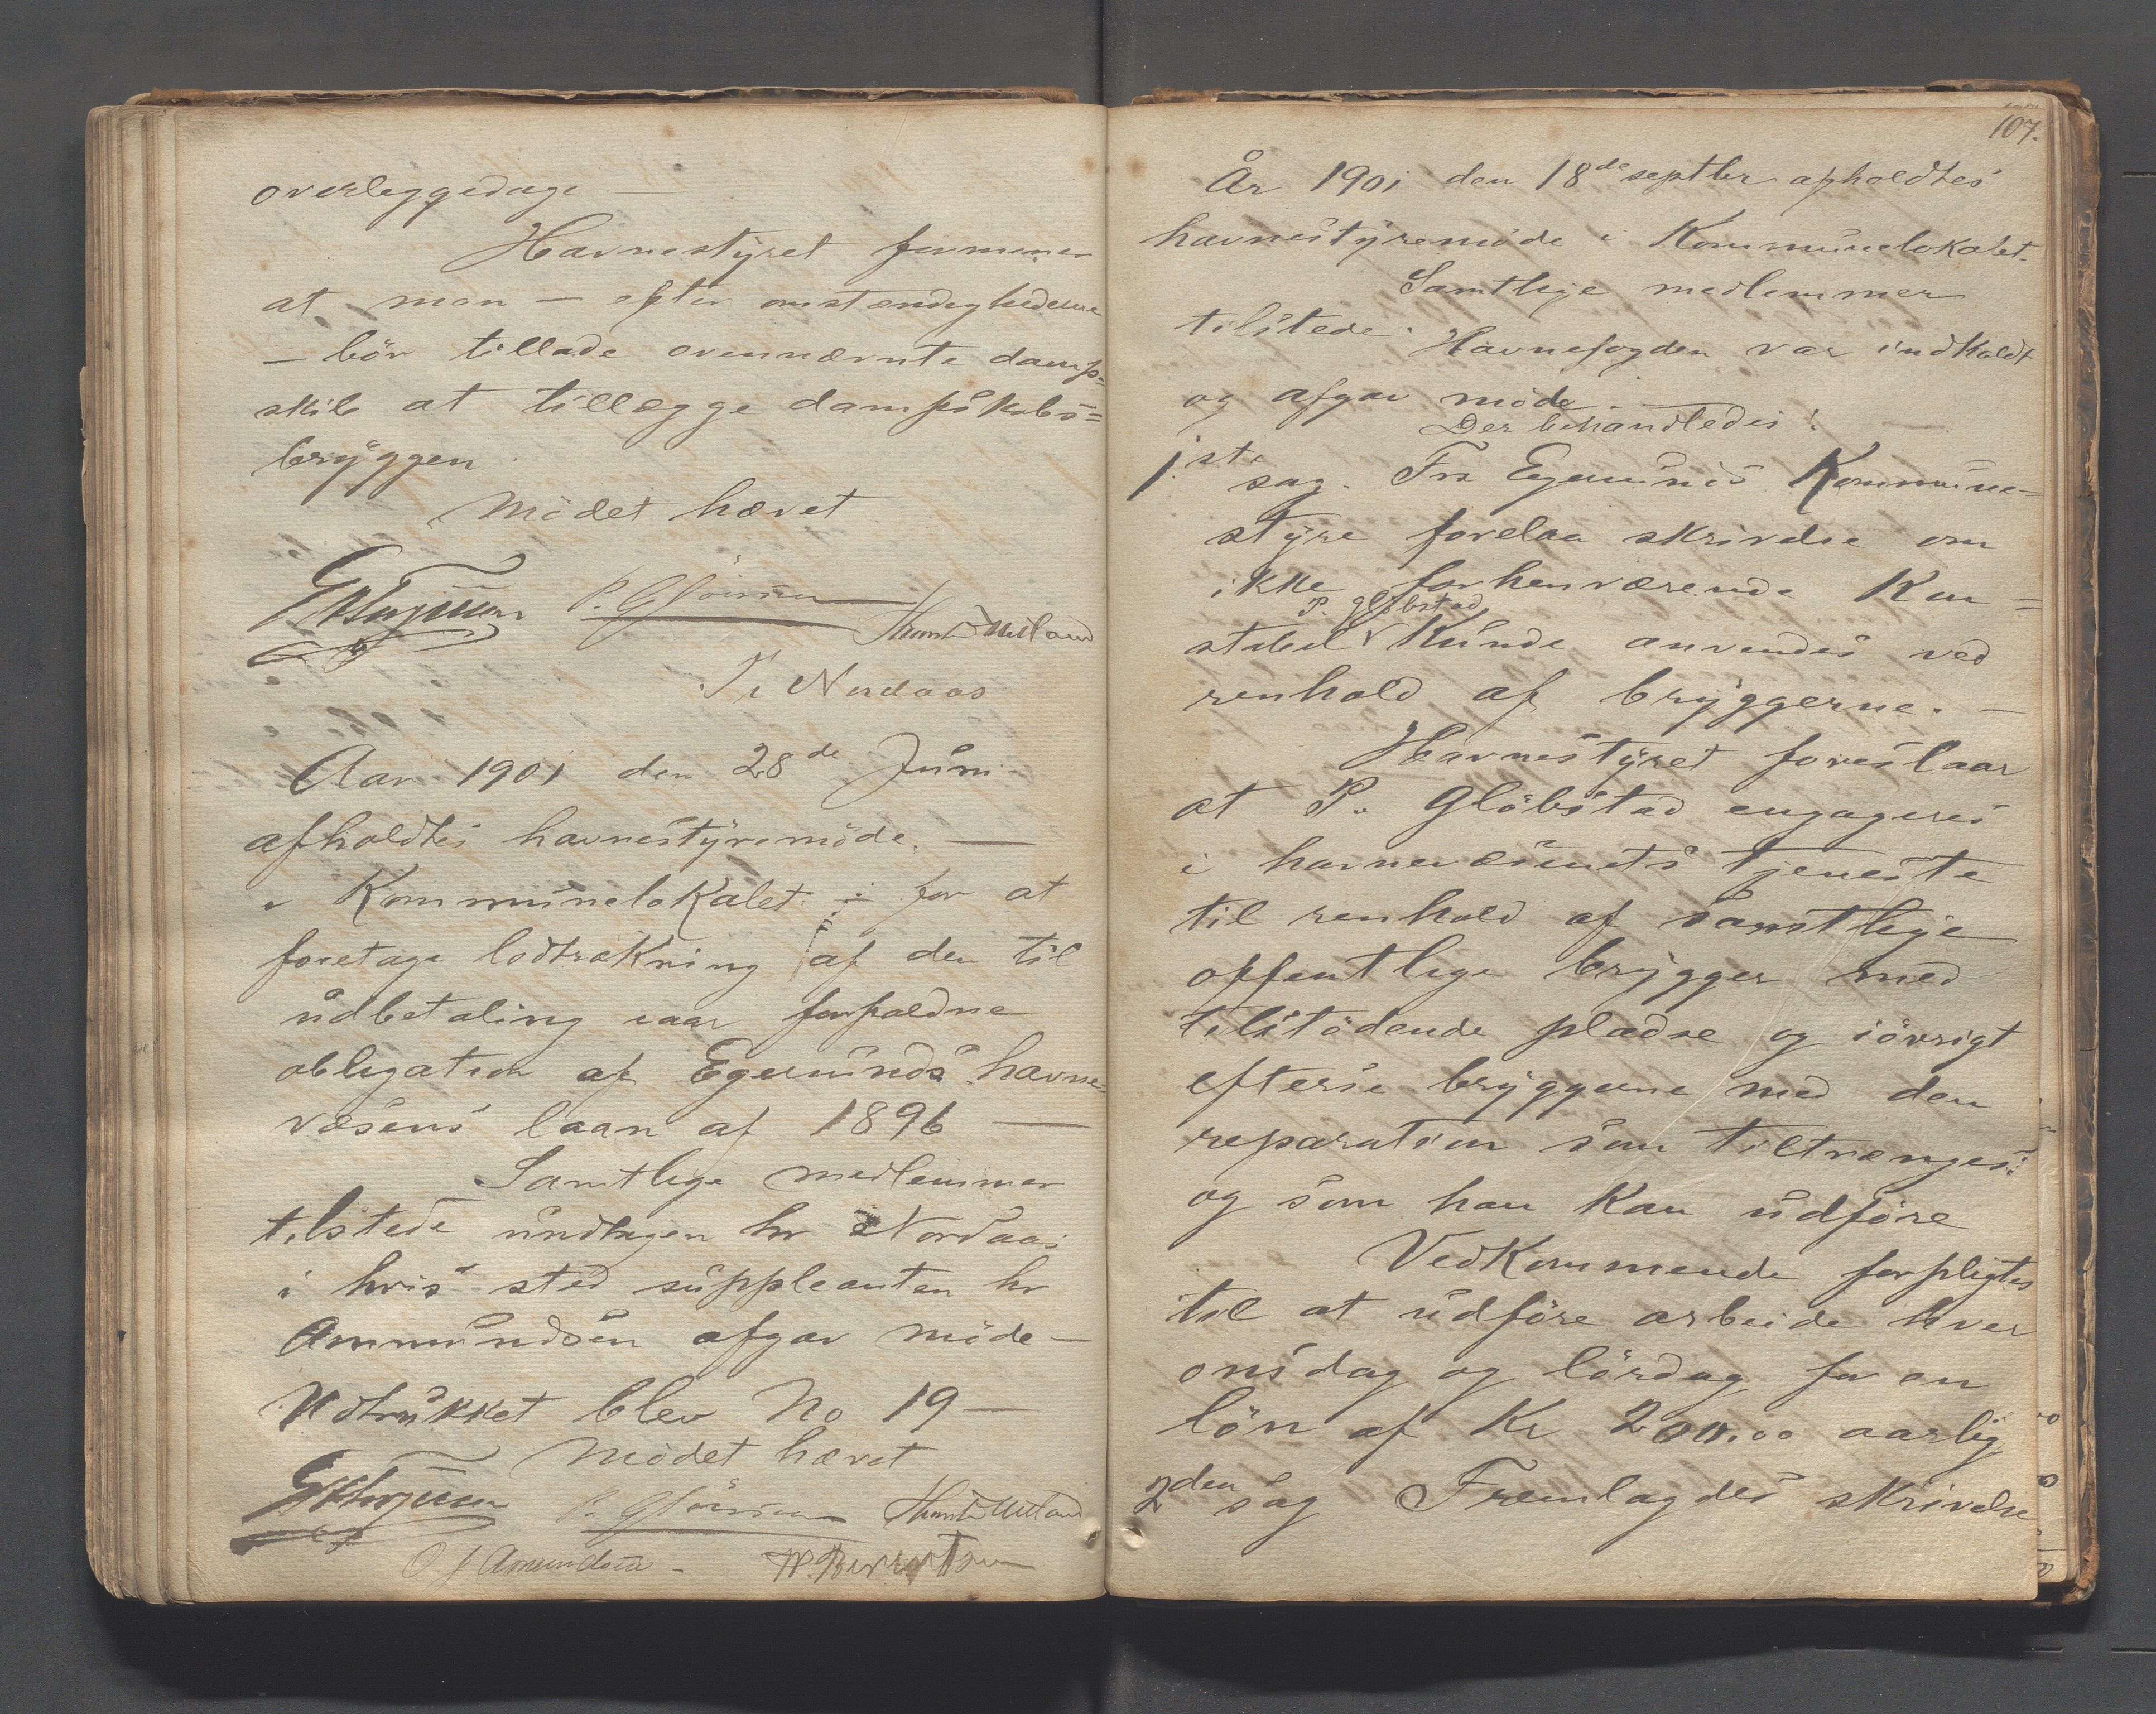 overleggedage
Havnestyret formener
at man – efter omstændighederne
– bör tillade ovennævnte damp=
skib at tillægge dampskibs=
bryggen
Mödet hævet
T. Nordaas
Aar 1901 den 28de Juni
afholdtes havnestyremöde. —
i Kommunelokalet – for at
foretage lodtrækning af den til
udbetaling iaar forfaldne
obligation af Egersunds havne=
væsens laan af 1896 —
Samtlige medlemmer
tilstede undtagen hr Nordaas
i hvis sted suppleanten hr
Ammundsen afgav möde –
Udtrukket blev No 19 –
Mödet hævet
O. J. Amundsen -
107.
År 1901 den 18de septbr afholdtes
havnestyremöde i Kommunelokalet.
Samtlige medlemmer
tilstede. Havnefogden var indkaldt
og afgav möde. —
Der behandledes:
1ste sag. Fra Egersunds Kommune=
styre forelaa skrivelse om
ikke forhenværende Kon=
P. Glöbstad
stabel kunde anvendes ved
renhold af bryggerne. —
Havnestyret foreslaar
at P. Glöbstad engageres
i havnevæsenets tjeneste
til renhold af samtlige
offentlige brygger med
tilstödende pladse og iövrigt
efterse bryggerne med den
reparation som tiltrænges:
og som han kan udföre
Vedkommende forpligtes
til at udföre arbeide hver
onsdag og lördag for en
lön af Kr 200.00 aarlig
2den sag Fremlagdes skrivelse